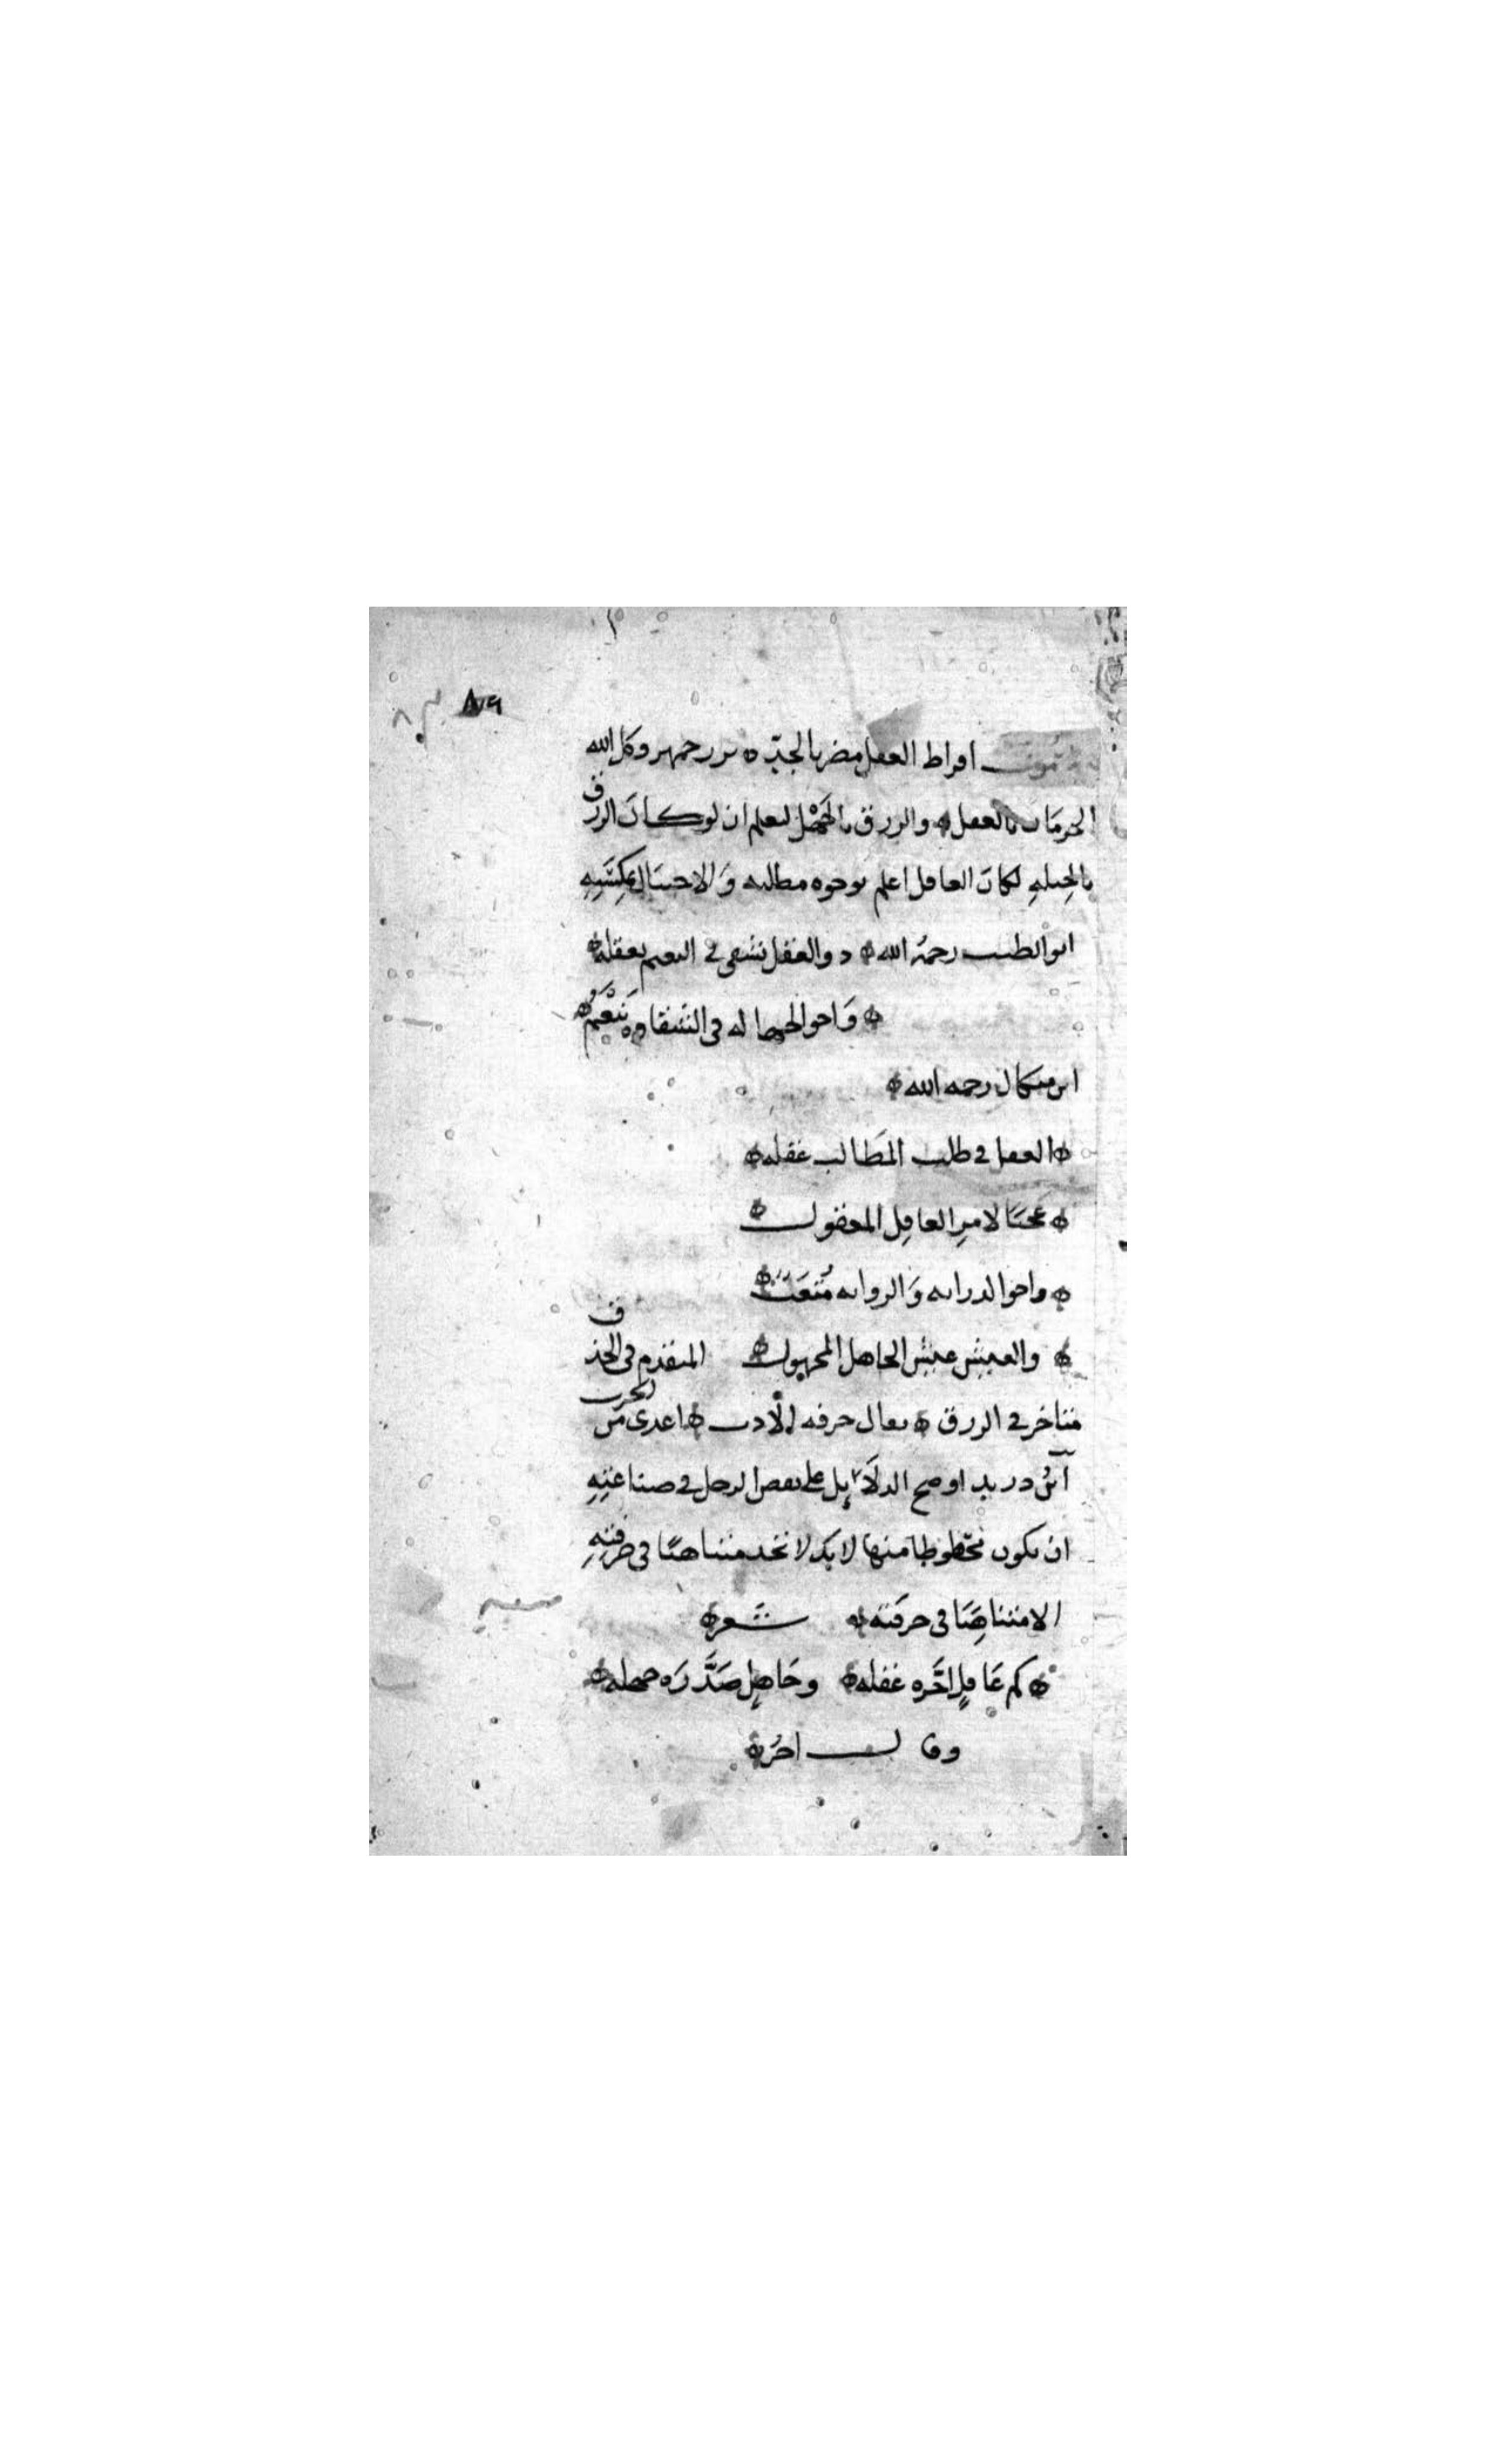 ٨٩
افراط العقل مضر بالجدّ ه بزرجمهر وكل الله
الحرمان بالعقل ه والرزق بالجهل ليعلم ان لو كان الرزق
بالحيله لكان العاقل اعلم بوجوه مطلبه والاحتيال
ابو الطيب رحمه الله ه ذو العقل يشقى في النعيم بعقله ه
ه واخو الجهاله في الشقاوه ينعم ه
ابن ميكال رحمه الله ه
ه العقل في طلب المطالب عقله ه
ه عجبا لامر العاقل المعقول ه
ه واخو الدرايه والروايه متعب ه
ه والعيش عيش الجاهل المجهول ه المتقدم في الحذق
متاخر في الرزق ه يقال حرفه الادب ه اعدى من الجرب
ابن دريد اوضح الدلائل على نقص الرجل في صناعته
ان يكون محظوظا منها لانك لا تجد متناهيا في حرفته
الا متناهيا في حرفته ه شعر ه
ه كم عاقل اخره عقله ه وجاهل صدره جهله ه
وقال اخر ه